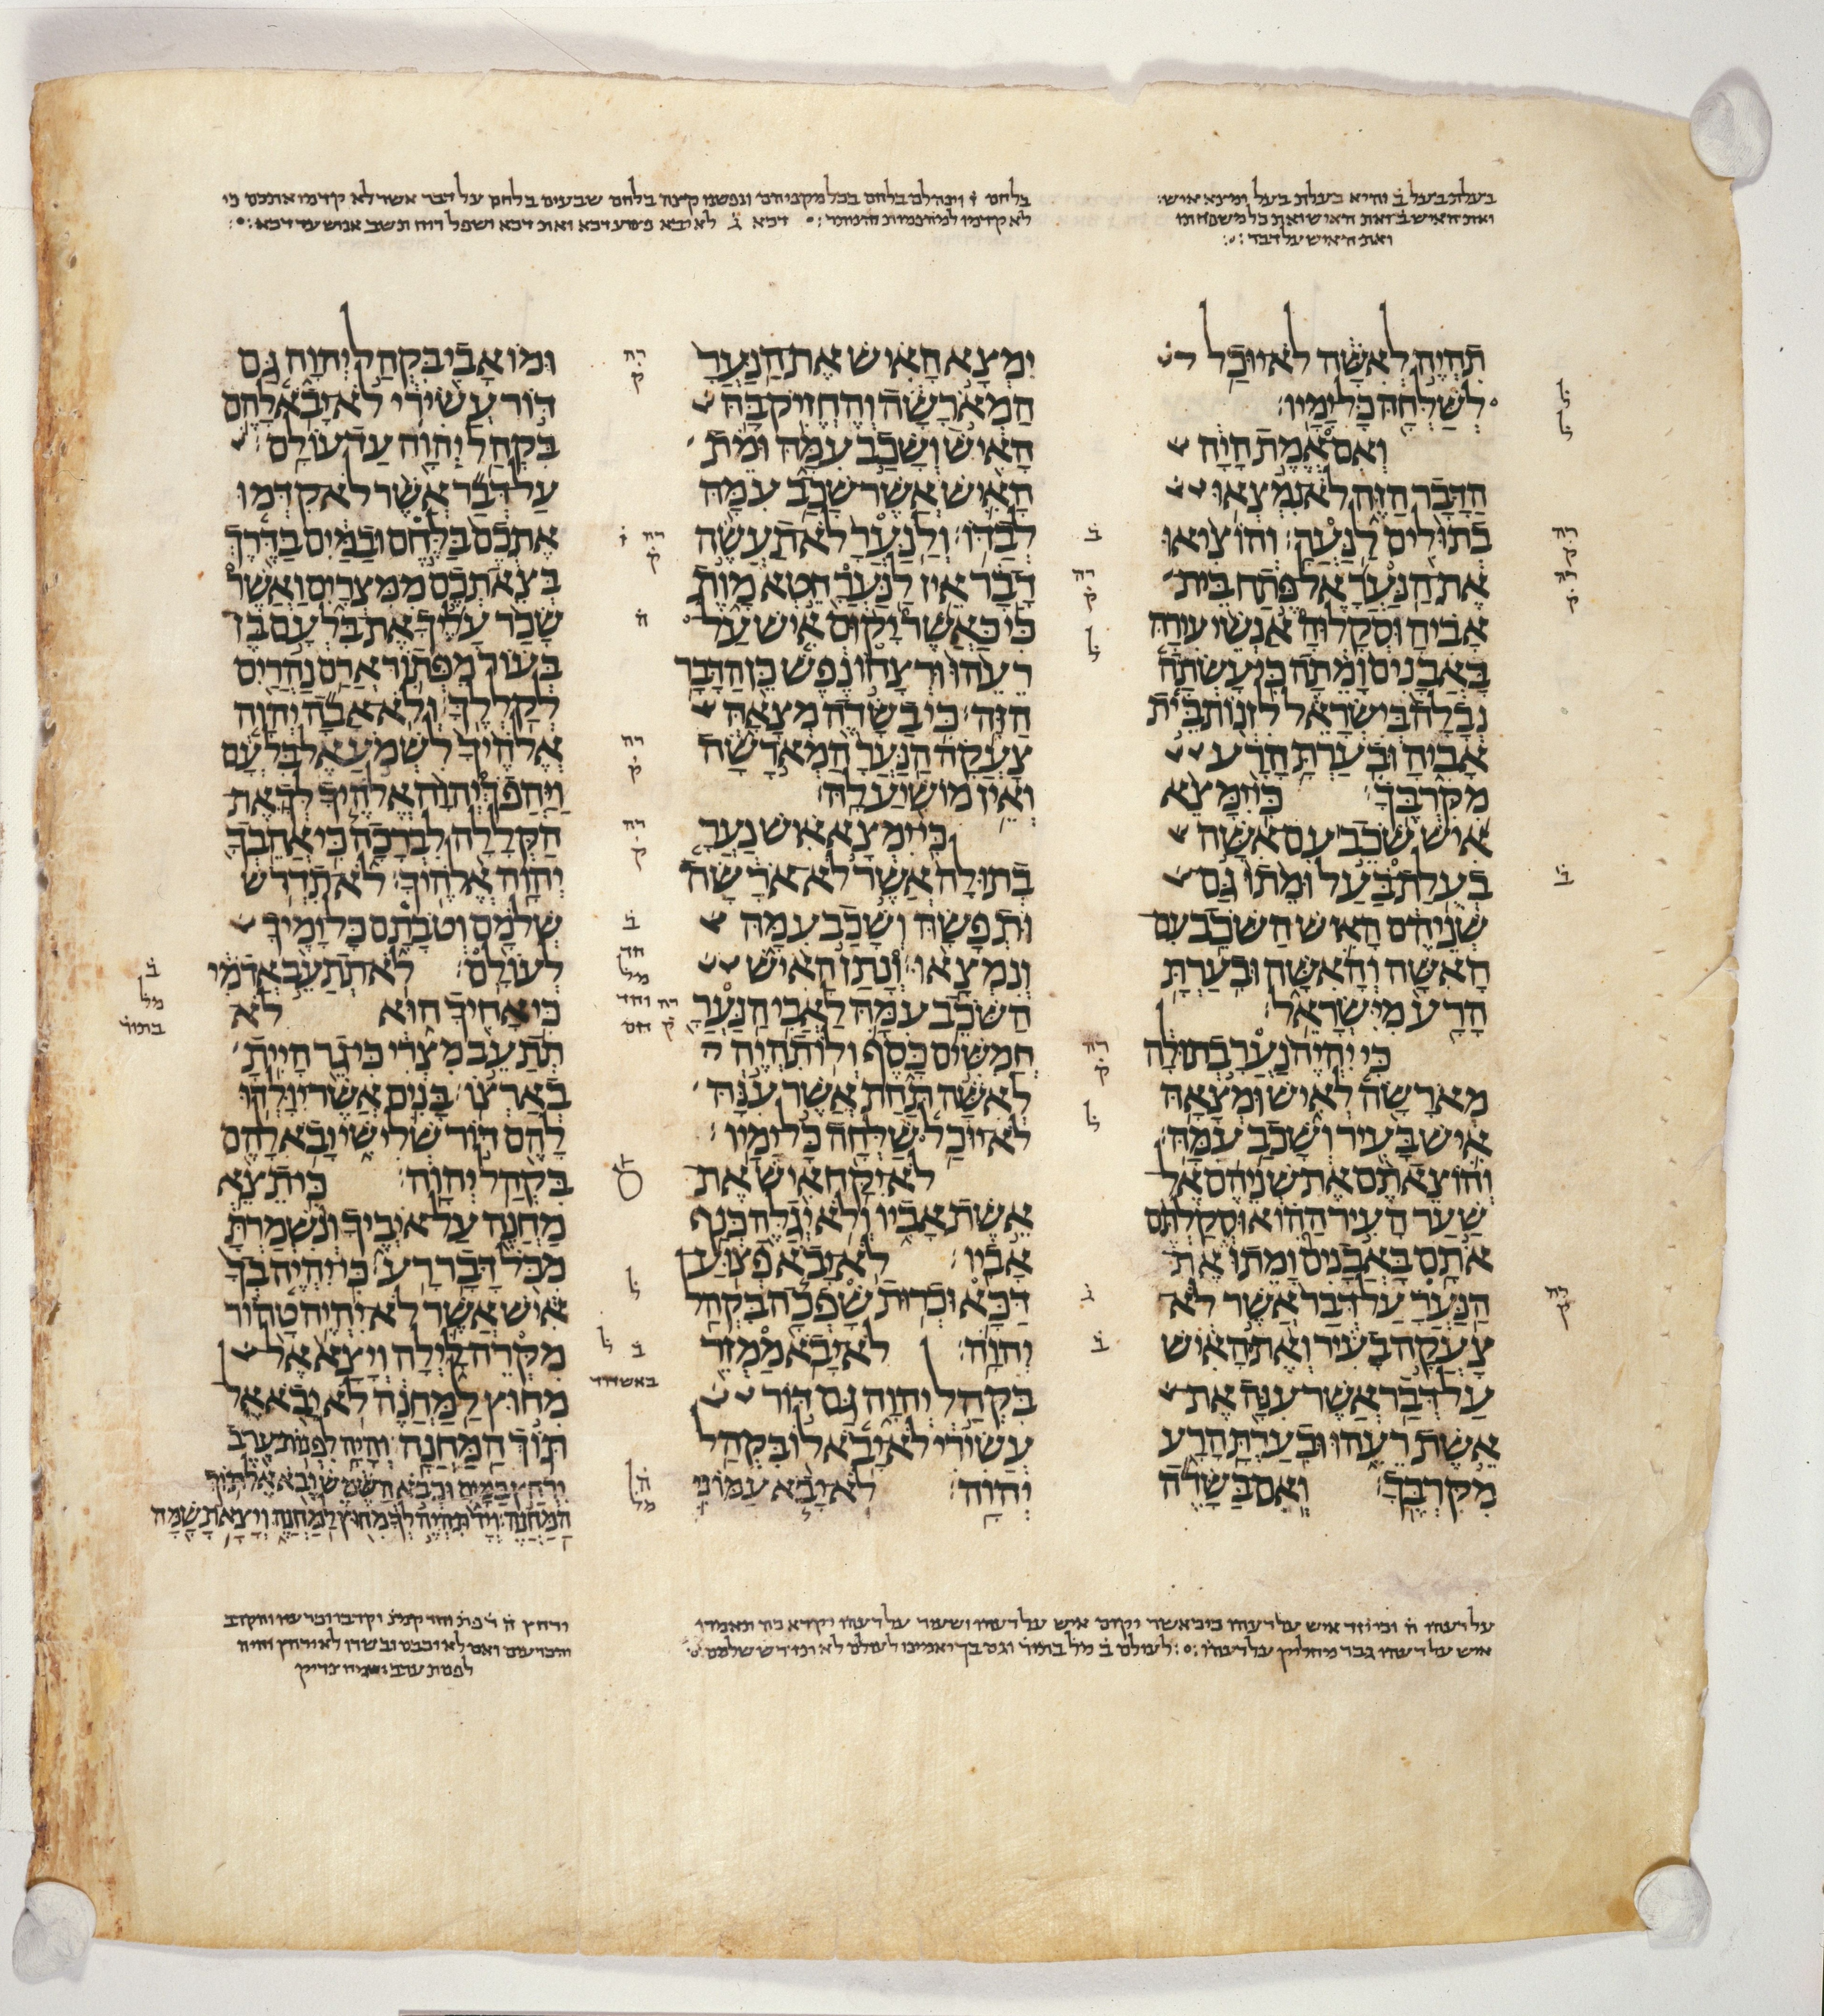 בעלת בעל ב והיא בעלת בעל ומצא איש:
ואת האיש ב ואת האיש ואת כל משפחתו
ואת האיש על דבר:
בלחם ז וינהלם בלחם בכל מקניהם ונפשנו קצה בלחם שבעים בלחם על דבר אשר לא קדמו אתכם כי
לא קדמו למחרת המחר: דכא ג לא יבא פצוע דכא ואת דכא ושפל רוח תשב אנוש עד דכא:
תהיה לאשה לא יוכל
לשלחה כל ימיו:
ואם אמת היה
הדבר הזה לא נמצאו
בתולים לנער: והוציאו
את הנער אל פתח בית
אביה וסקלוה אנשי עירה
באבנים ומתה כי עשתה
נבלה בישראל לזנות בית
אביה ובערת הרע
מקרבך: כי ימצא
איש שכב עם אשה
בעלת בעל ומתו גם
שניהם האיש השכב עם
האשה והאשה ובערת
הרע מישראל:
כי יהיה נער בתולה
מארשה לאיש ומצאה
איש בעיר ושכב עמה:
והוצאתם את שניהם אל
שער העיר ההוא וסקלתם
אתם באבנים ומתו את
הנער על דבר אשר לא
צעקה בעיר ואת האיש
על דבר אשר ענה את
אשת רעהו ובערת הרע
מקרבך: ואם בשדה
ימצא האיש את הנער
המארשה והחזיק בה
האיש ושכב עמה ומת
האיש אשר שכב עמה
לבדו: ולנער לא תעשה
דבר אין לנער חטא מות
כי כאשר יקום איש על
רעהו ורצחו נפש כן הדבר
הזה: כי בשדה מצאה
צעקה הנער המארשה
ואין מושיע לה:
כי ימצא איש נער
בתולה אשר לא ארשה
ותפשה ושכב עמה
ונמצאו: ונתן האיש
השכב עמה לאבי הנער
חמשים כסף ולו תהיה
לאשה תחת אשר ענה
לא יוכל שלחה כל ימיו:
לא יקח איש את
אשת אביו ולא יגלה כנף
אביו: לא יבא פצוע
דכא וכרות שפכה בקהל
יהוה: לא יבא ממזר
בקהל יהוה גם דור
עשירי לא יבא לו בקהל
יהוה: לא יבא עמוני
ומואבי בקהל יהוה גם
דור עשירי לא יבא להם
בקהל יהוה עד עולם:
על דבר אשר לא קדמו
אתכם בלחם ובמים בדרך
בצאתכם ממצרים ואשר
שכר עליך את בלעם בן
בעור מפתור ארם נהרים
לקללך: ולא אבה יהוה
אלהיך לשמע אל בלעם
ויהפך יהוה אלהיך לך את
הקללה לברכה כי אהבך
יהוה אלהיך: לא תדרש
שלמם וטבתם כל ימיך
לעולם: לא תתעב אדמי
כי אחיך הוא לא
תתעב מצרי כי גר היית
בארצו: בנים אשר יולדו
להם דור שלישי יבא להם
בקהל יהוה: כי תצא
מחנה על איביך ונשמרת
מכל דבר רע: כי יהיה בך
איש אשר לא יהיה טהור
מקרה לילה ויצא אל
מחוץ למחנה לא יבא אל
תוך המחנה: והיה לפנות ערב
ירחץ במים וכבא השמש יבא אל תוך
המחנה: ויד תהיה לך מחוץ למחנה ויצאת שמה
על רעהו
איש על רעהו גבר מחליק על רעהו: לעולם ב מל בתור וגם בך יאמינו לעולם לא תדרש שלמם